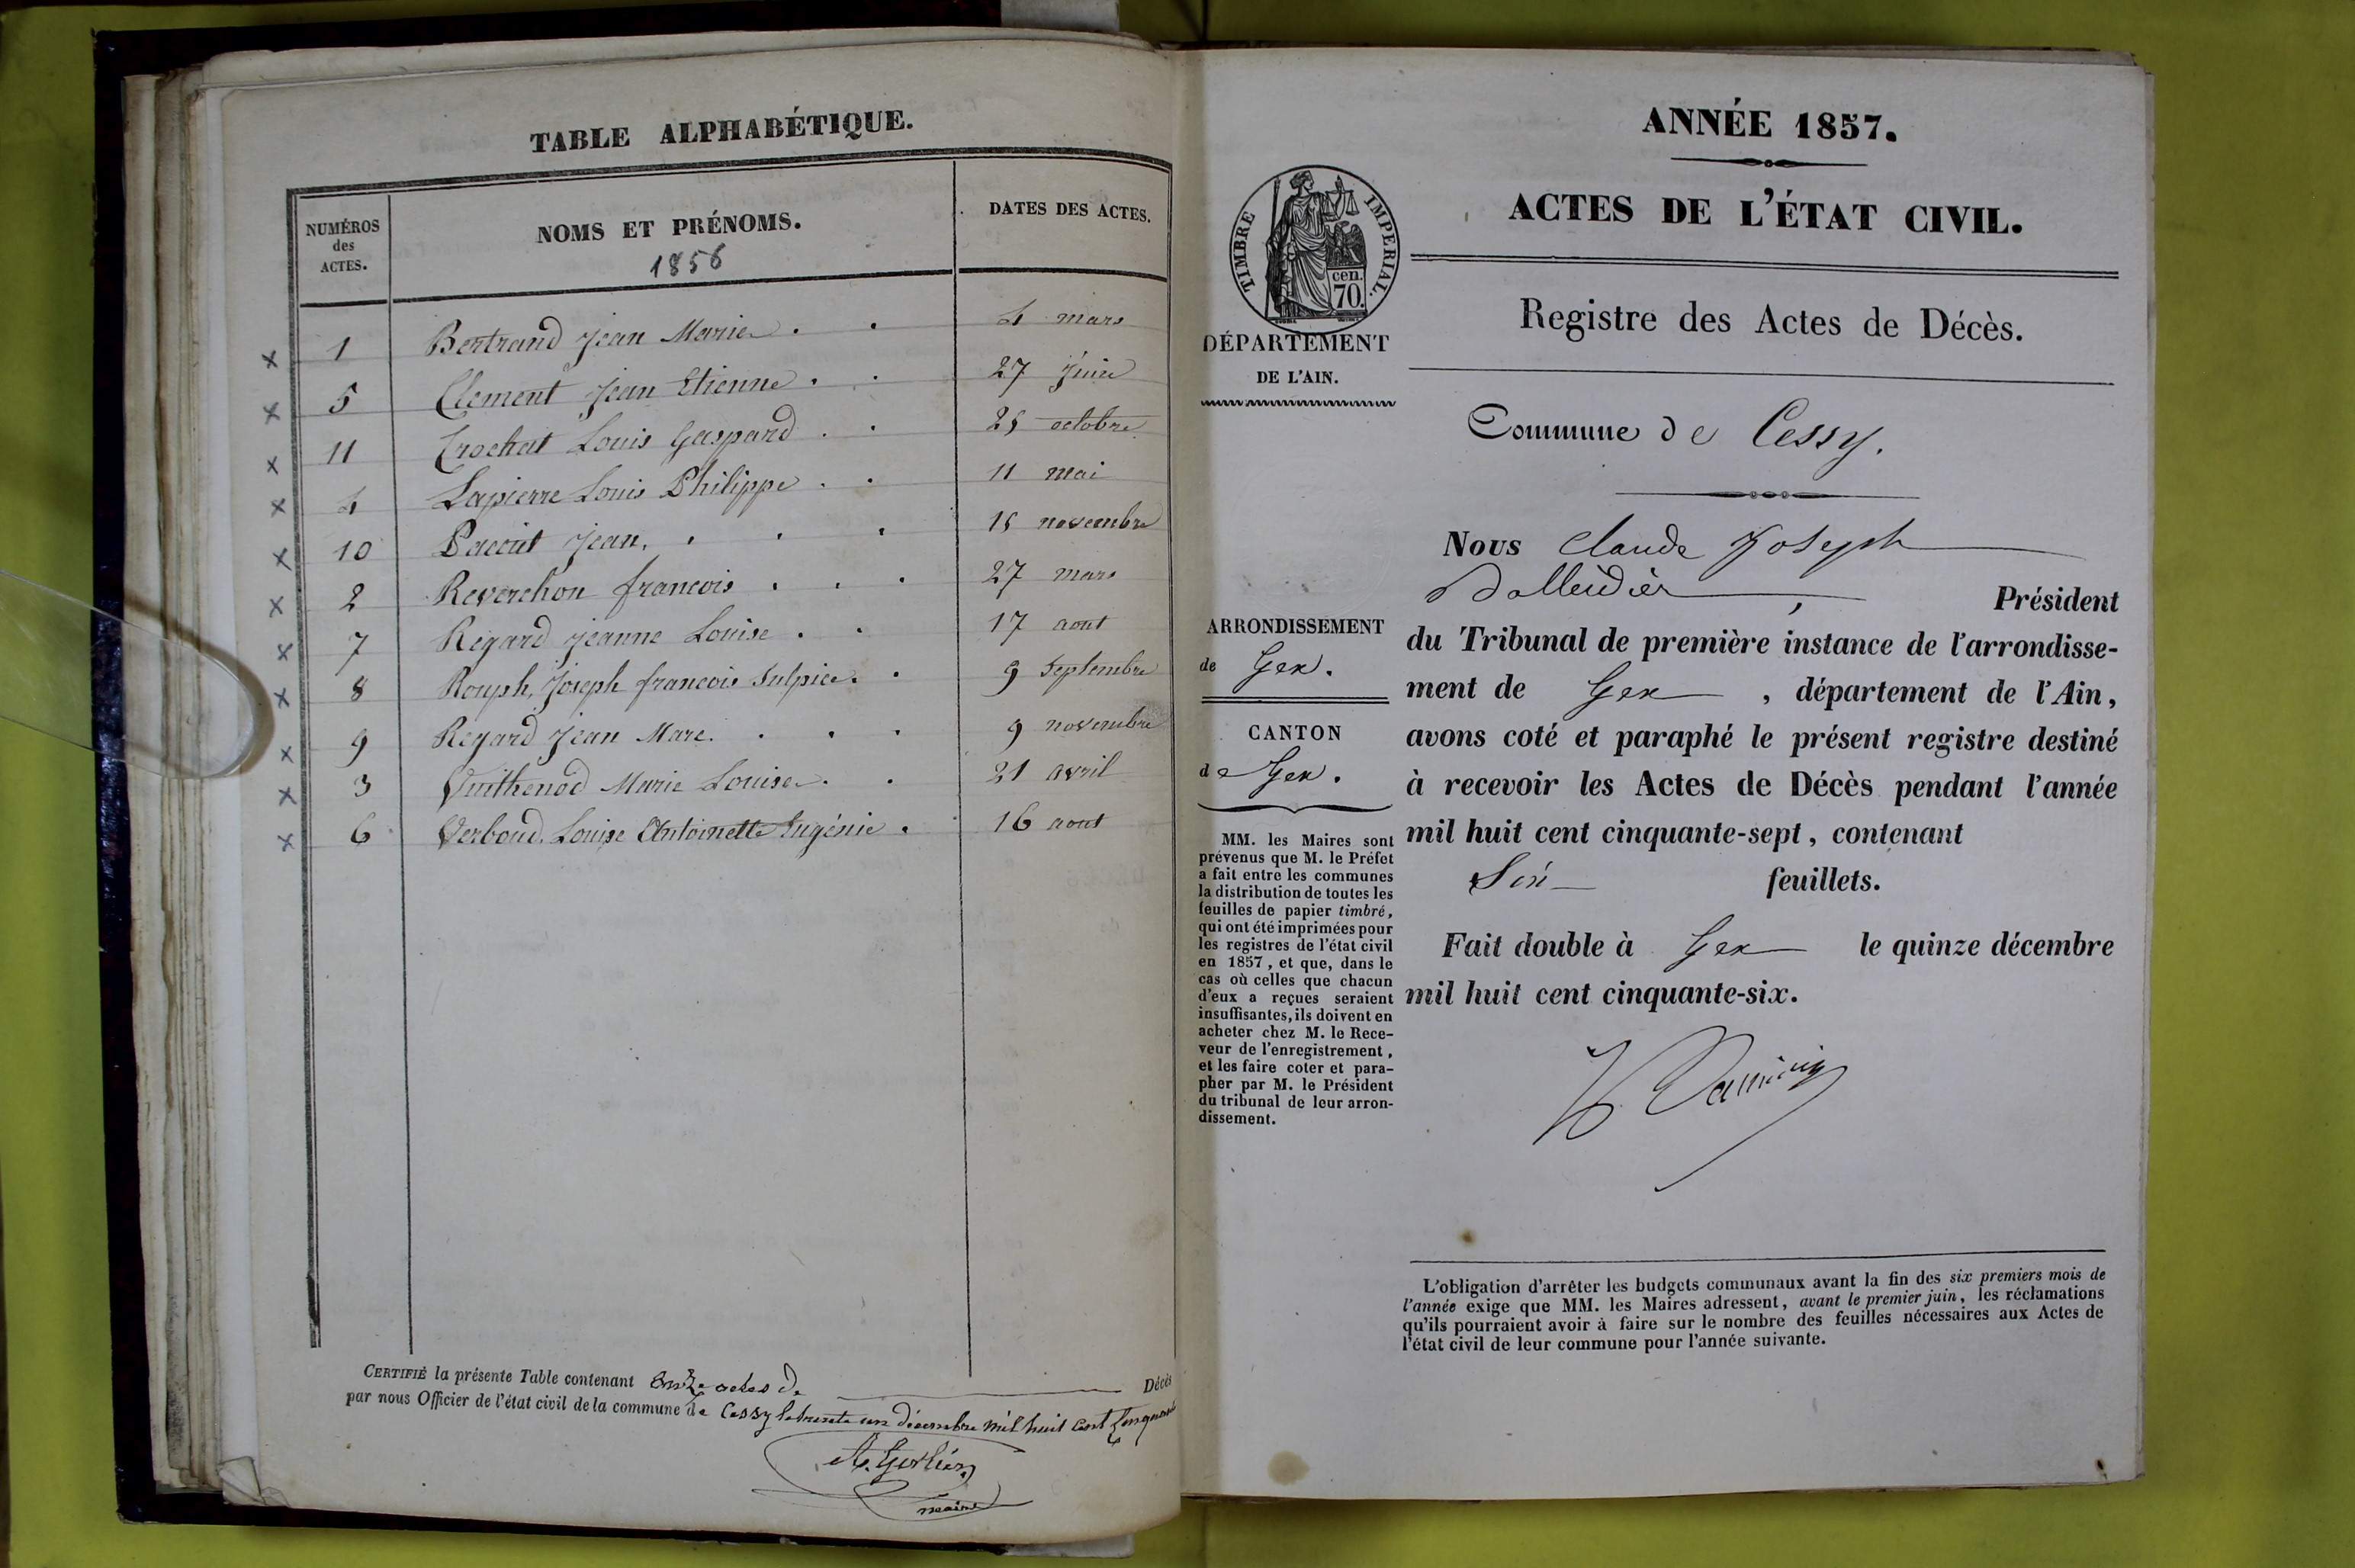 TABLE ALPHABÉTIQUE.
NUMÉROS
des
ACTES.
NOMS ET PRÉNOMS.
1856
DATES DES ACTES.
1 Bertrand Jean Marie . . 4 mars
5 Clement Jean Etienne . . 27 juin
11 Crochat Louis Gaspard . . 25 octobre
4 Lapierre Louis Philippe . . 11 mai
10 Jean, . . . 15 novembre
2 Reverchon francois . . . 27 mars
7 Regard Jeanne Louise . . 17 aout
8 Rouph, Joseph francois Sulpice. . 9 Septembre
9 Regard Jean Marc. . . . 9 novembre
3 Marie Louise . . 21 avril
6 Louise Antoinette Eugénie . 16 aout
CERTIFIÉ la présente Table contenant onze actes de Décès
par nous Officier de l'état civil de la commune de Cessy le trente un décembre mil huit cent
maire
ANNÉE 1857.
ACTES DE L'ÉTAT CIVIL.
TIMBRE IMPERIAL.
cen.
70.
Registre des Actes de Décès.
DÉPARTEMENT
DE L'AIN.
Commune de Cessy.
Nous Claude Joseph
Président
du Tribunal de première instance de l'arrondisse-
ment de Gex , département de l'Ain,
avons coté et paraphé le présent registre destiné
à recevoir les Actes de Décès pendant l'année
mil huit cent cinquante-sept, contenant
Six feuillets.
Fait double à Gex le quinze décembre
mil huit cent cinquante-six.
ARRONDISSEMENT
de Gex.
CANTON
de Gex.
MM. les Maires sont
prévenus que M. le Préfet
a fait entre les communes
la distribution de toutes les
feuilles de papier timbré,
qui ont été imprimées pour
les registres de l'état civil
en 1857, et que, dans le
cas où celles que chacun
d'eux a reçues seraient
insuffisantes, ils doivent en
acheter chez M. le Rece-
veur de l'enregistrement,
et les faire coter et para-
pher par M. le Président
du tribunal de leur arron-
dissement.
L'obligation d'arrêter les budgets communaux avant la fin des six premiers mois de
l'année exige que MM. les Maires adressent, avant le premier juin, les réclamations
qu'ils pourraient avoir à faire sur le nombre des feuilles nécessaires aux Actes de
l'état civil de leur commune pour l'année suivante.